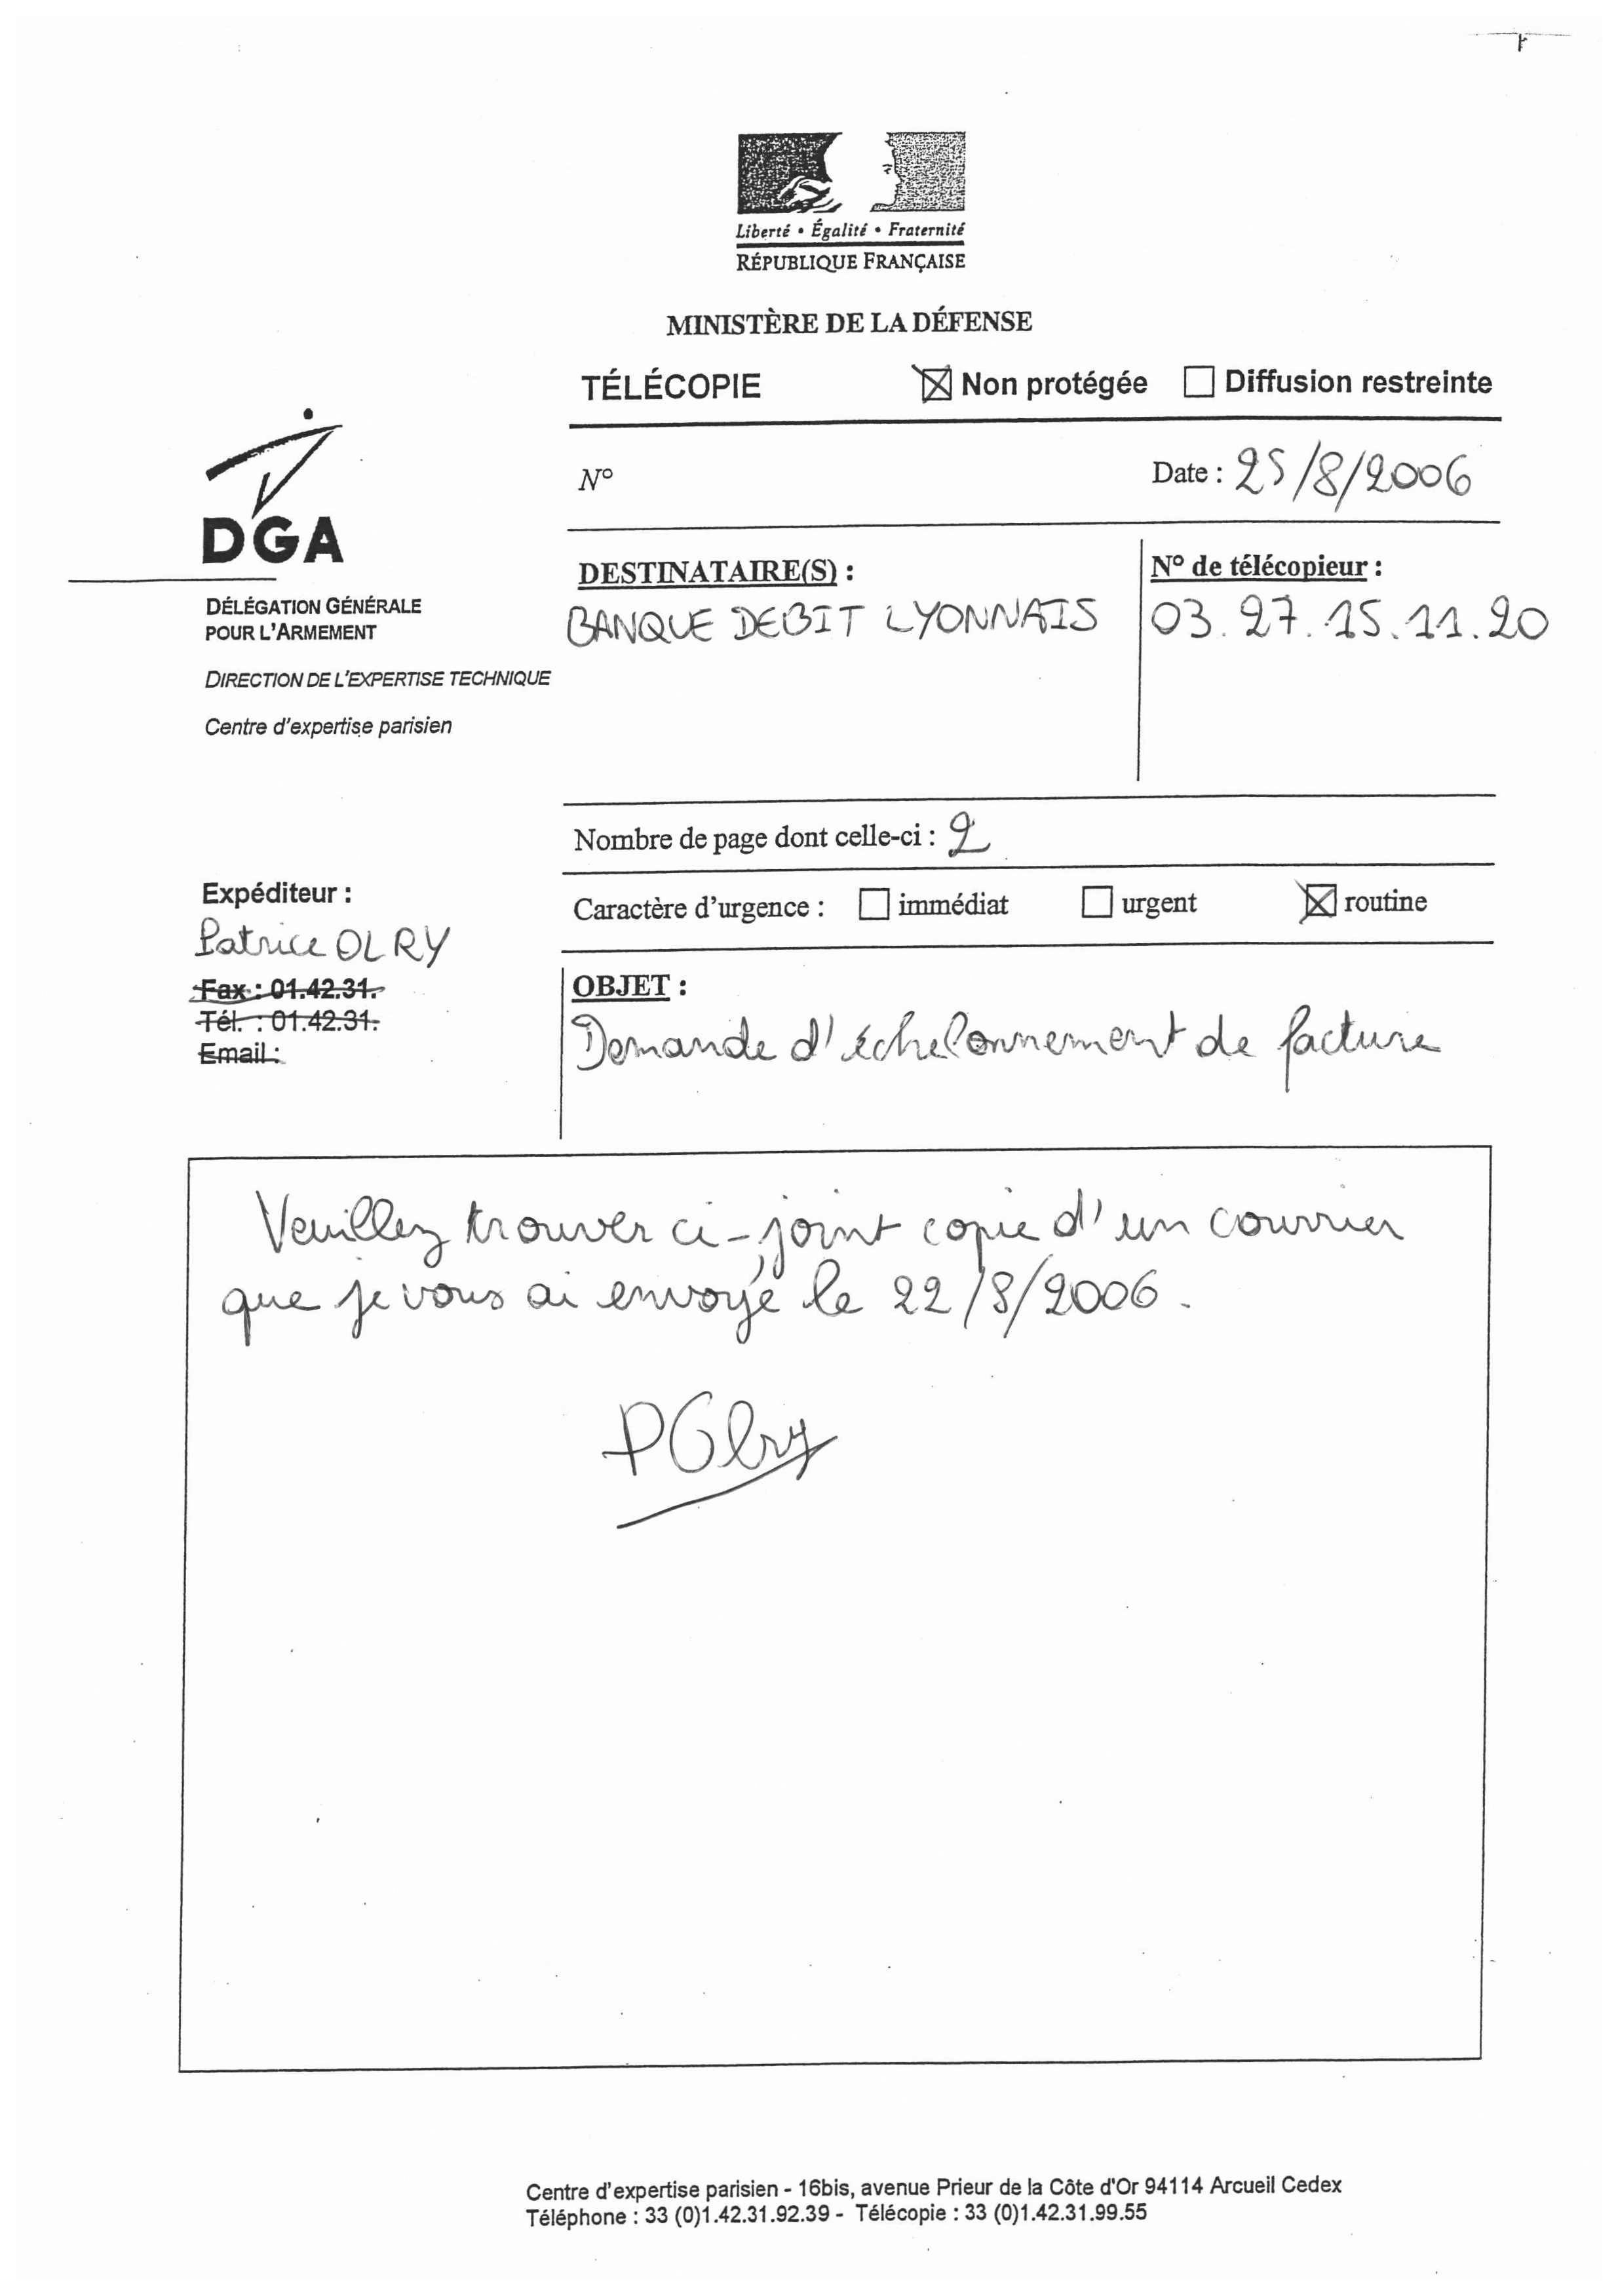 Liberté • Égalité • Fraternité
RÉPUBLIQUE FRANÇAISE
MINISTÈRE DE LA DÉFENSE
TÉLÉCOPIE Non protégée Diffusion restreinte
N° Date : 25/8/2006
DGA
DÉLÉGATION GÉNÉRALE
POUR L'ARMEMENT
DIRECTION DE L'EXPERTISE TECHNIQUE
Centre d'expertise parisien
DESTINATAIRE(S) : N° de télécopieur :
BANQUE DEBIT LYONNAIS 03.27.15.11.20
Nombre de page dont celle-ci : 2
Caractère d'urgence : immédiat urgent routine
Expéditeur :
Patrice OLRY
Fax : 01.42.31.
Tél. : 01.42.31.
Email :
OBJET :
Demande d'échelonnement de facture
Veuillez trouver ci-joint copie d'un courrier
que je vous ai envoyé le 22/8/2006.
POlry
Centre d'expertise parisien - 16bis, avenue Prieur de la Côte d'Or 94114 Arcueil Cedex
Téléphone : 33 (0)1.42.31.92.39 - Télécopie : 33 (0)1.42.31.99.55